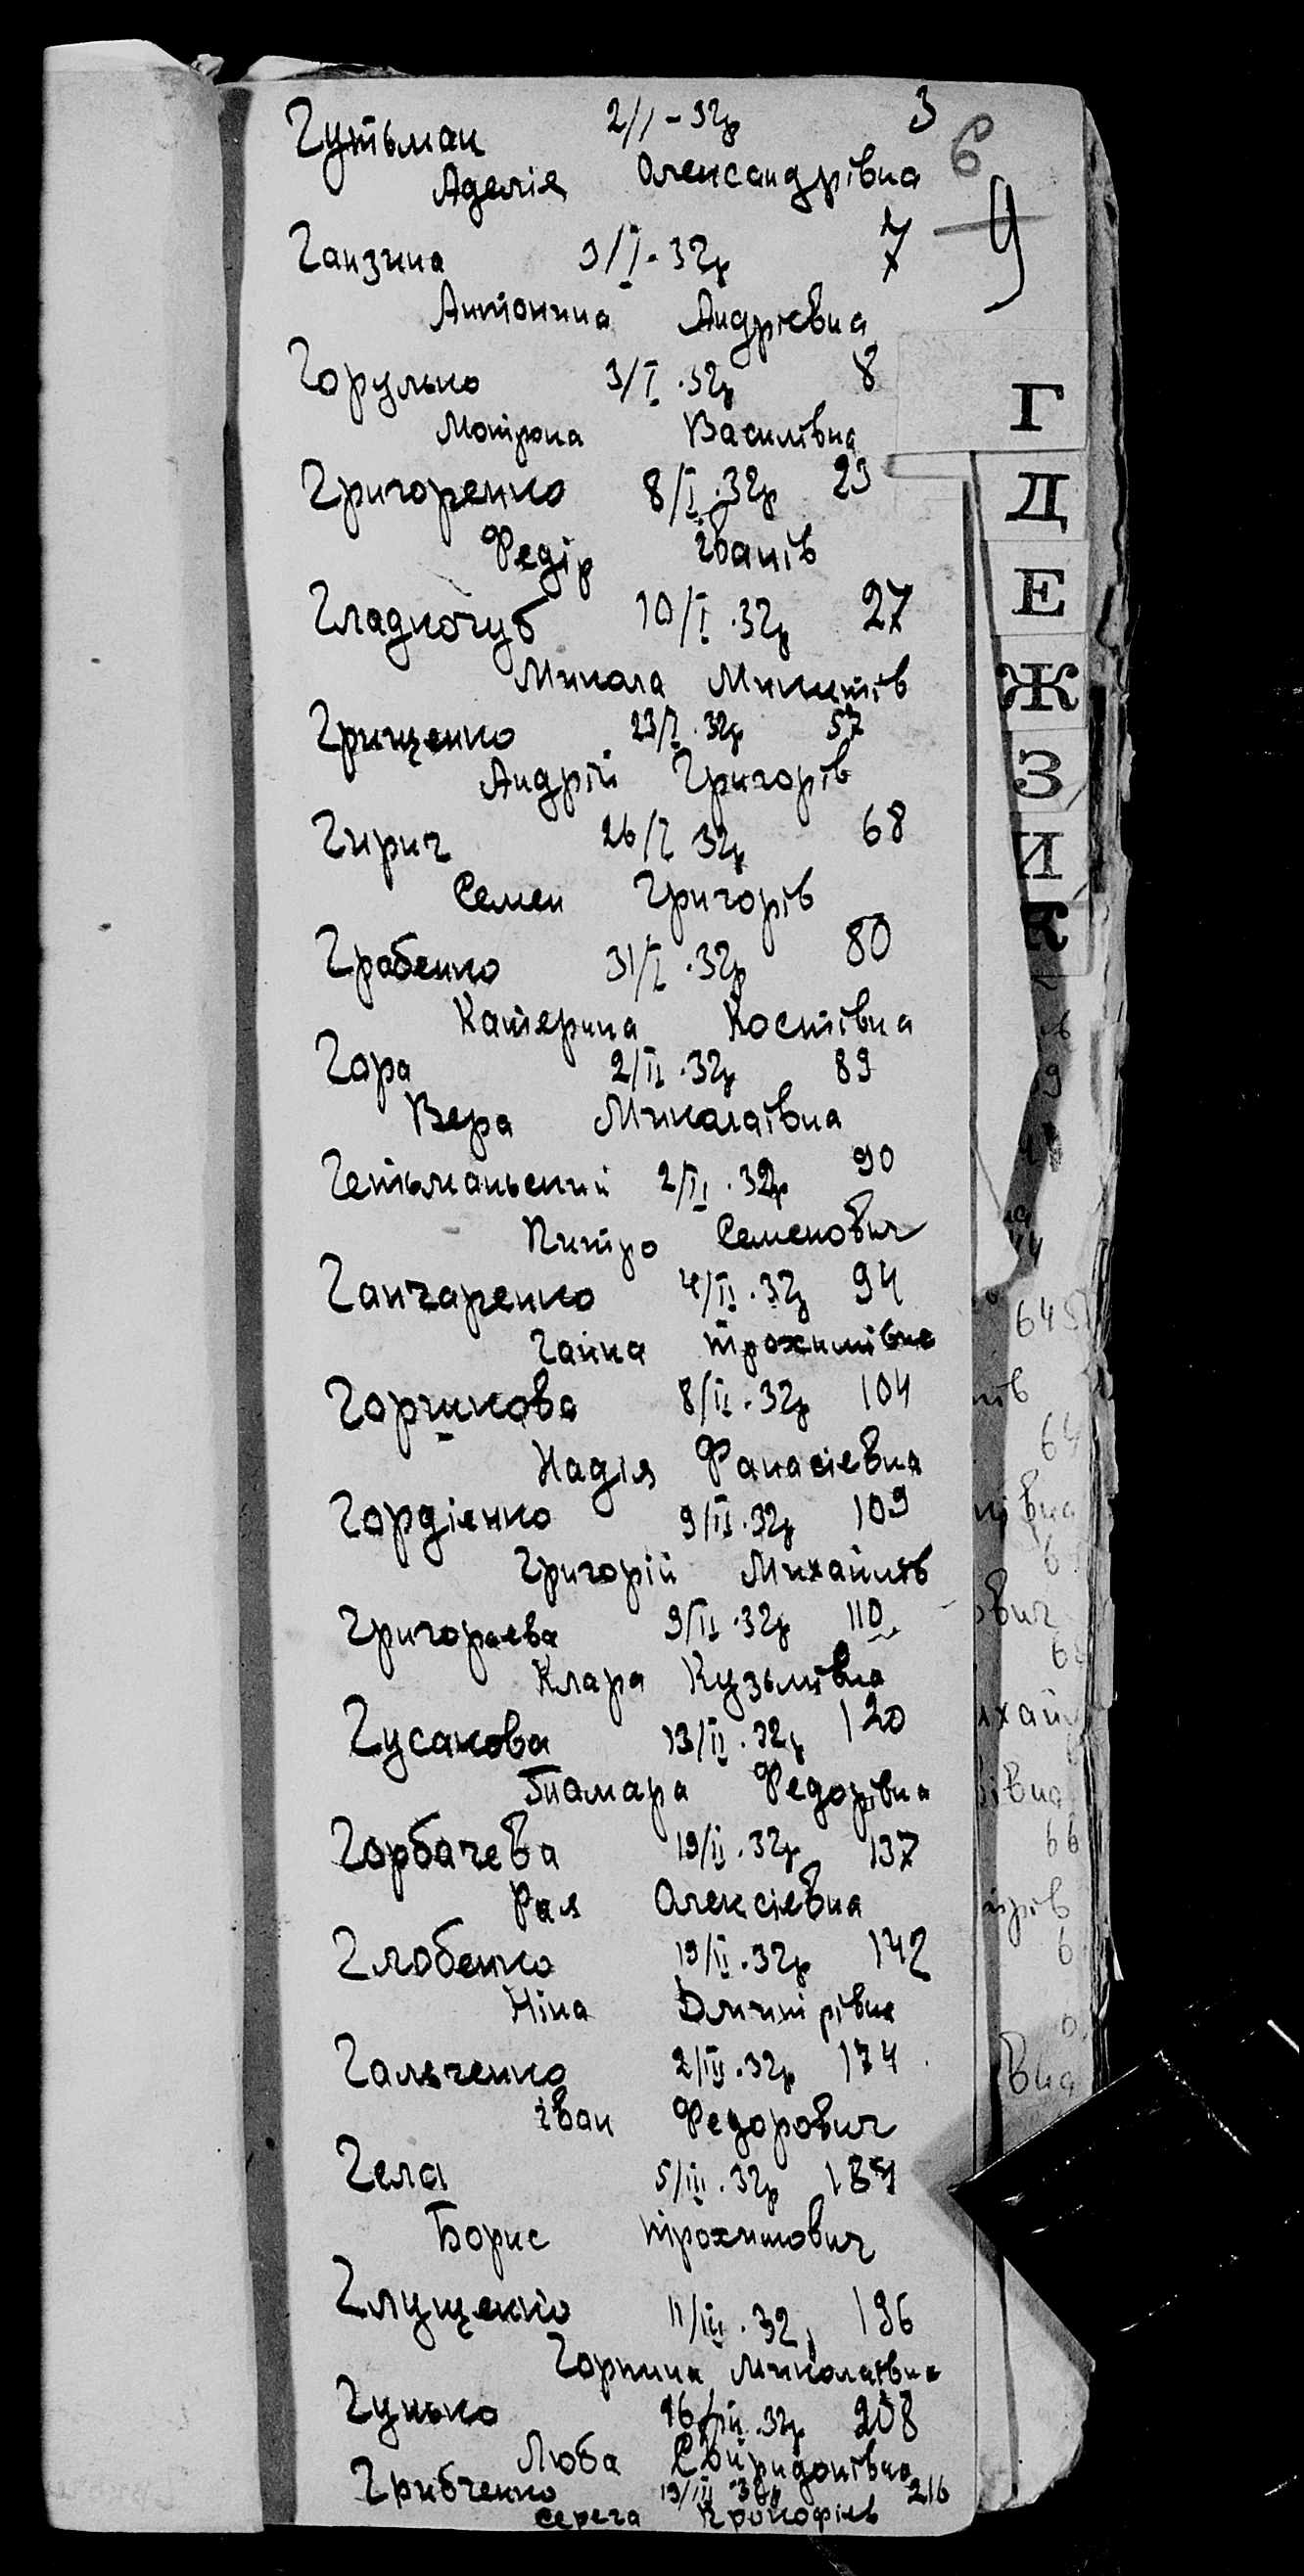 Гутьман 2/I-32р 3
6
Аделія Олександрівна
9
Ганзина 3/I.32р 7
Антонина Андрієвна
Горулько 3/I.32р 8
Мотрона Василівна
Григоренко 8/I.32р 23
Федір Іванів
Гладкочуб 10/I.32р 27
Микола Микитів
Грищенко 23/I.32р 57
Андрій Григорів
Гирич 26/I 32р 68
Семен Григорів
Грабенко 31/I.32р 80
Катерина Костівна
Гора 2/II.32р 89
Вера Миколаївна
Гетьманьский 2/II.32р 90
Митро Семенович
Ганчаренко 4/II.32р 94
Ганна Трохимівна
Горшкова 8/II.32р 104
Надія Фанасіевна
Гордіенко 9/II.32р 109
Григорій Михайлів
Григораева 9/II.32р 110
Клара Кузьмівна
Гусакова 13/II.32р 120
Тамара Федорівна
Горбачева 19/II.32р 137
Рая Олексіевна
Глобенко 19/II.32р 142
Ніна Дмитрівна
Гальченко 2/III.32р 174
Іван Федорович
Гела 5/III.32р
Борис Трохимович
Глущенко 11/III.32р 196
Горпина Миколаївна
Гунько 16/III.32р 208
Люба Свиридонівна
Грибченко 19/III 32р 216
Серега Прокофіев
Г
Д
Е
Ж
З
И
К